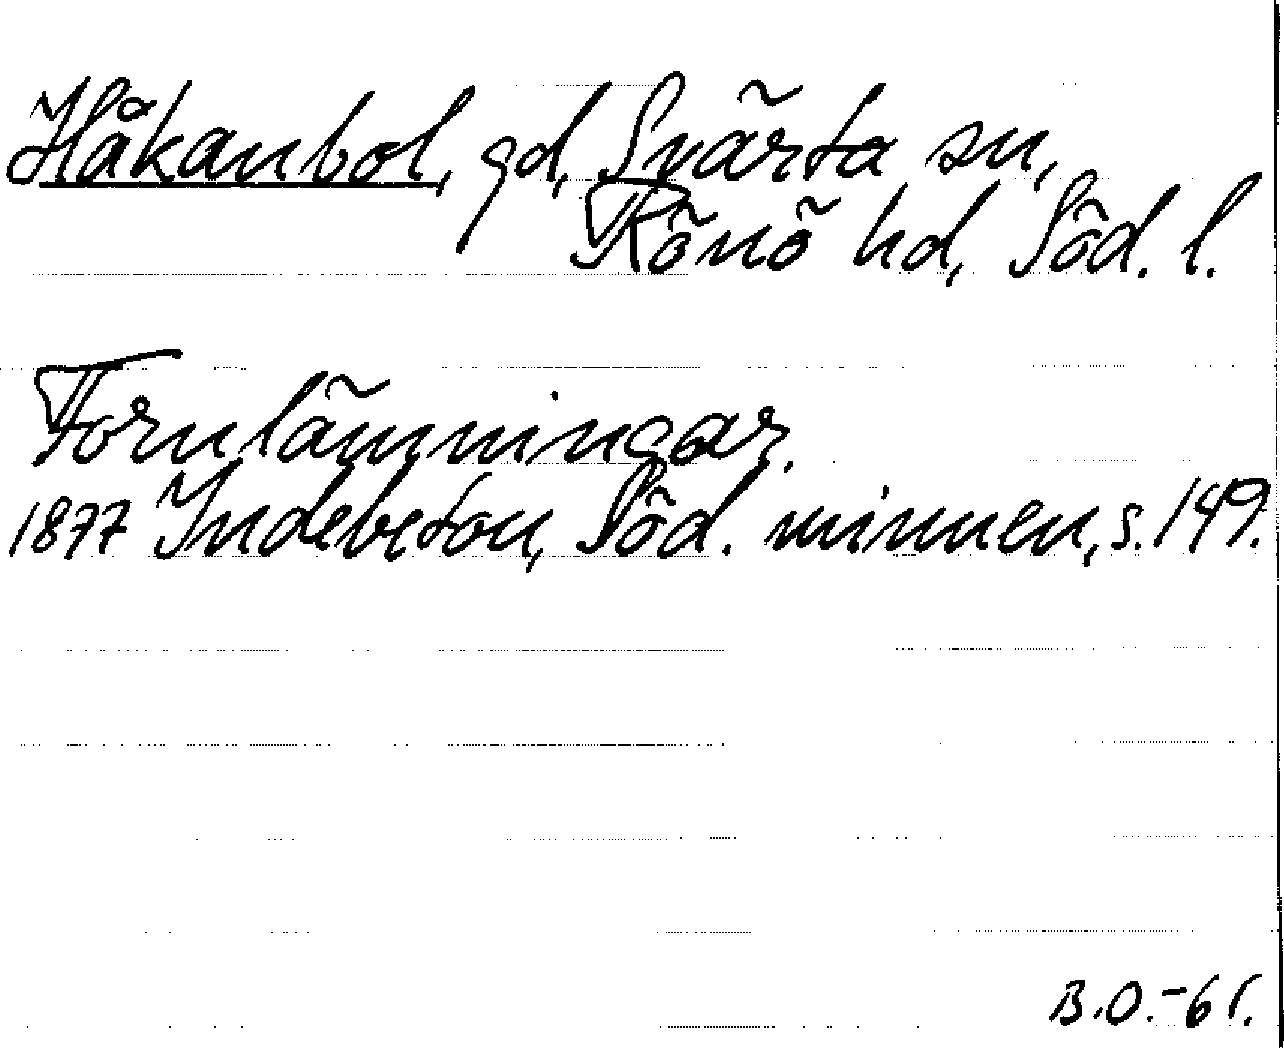 Håkanbol, gd, Svärta sn,
Rönö hd, Söd. l.
Fornlämningar.
1877 Indebetou, Söd. minnen, s. 149.
B.O.-61.